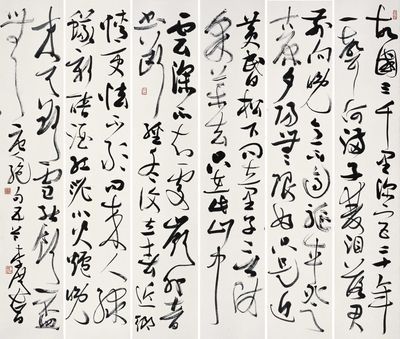 故國三千里深宮二十年
一聲何滿子雙淚落君
前向晚意不適驅車登
古原夕陽無限好只是近
黃昏松下問童子言師
采藥去只在此山中
雲深不知處嶺外音
書斷經冬復立春近鄉
情更怯不敢問來人綠
蟻新醅酒紅泥小火爐晚
來天欲雪能飲一盃
無 唐絕句五首